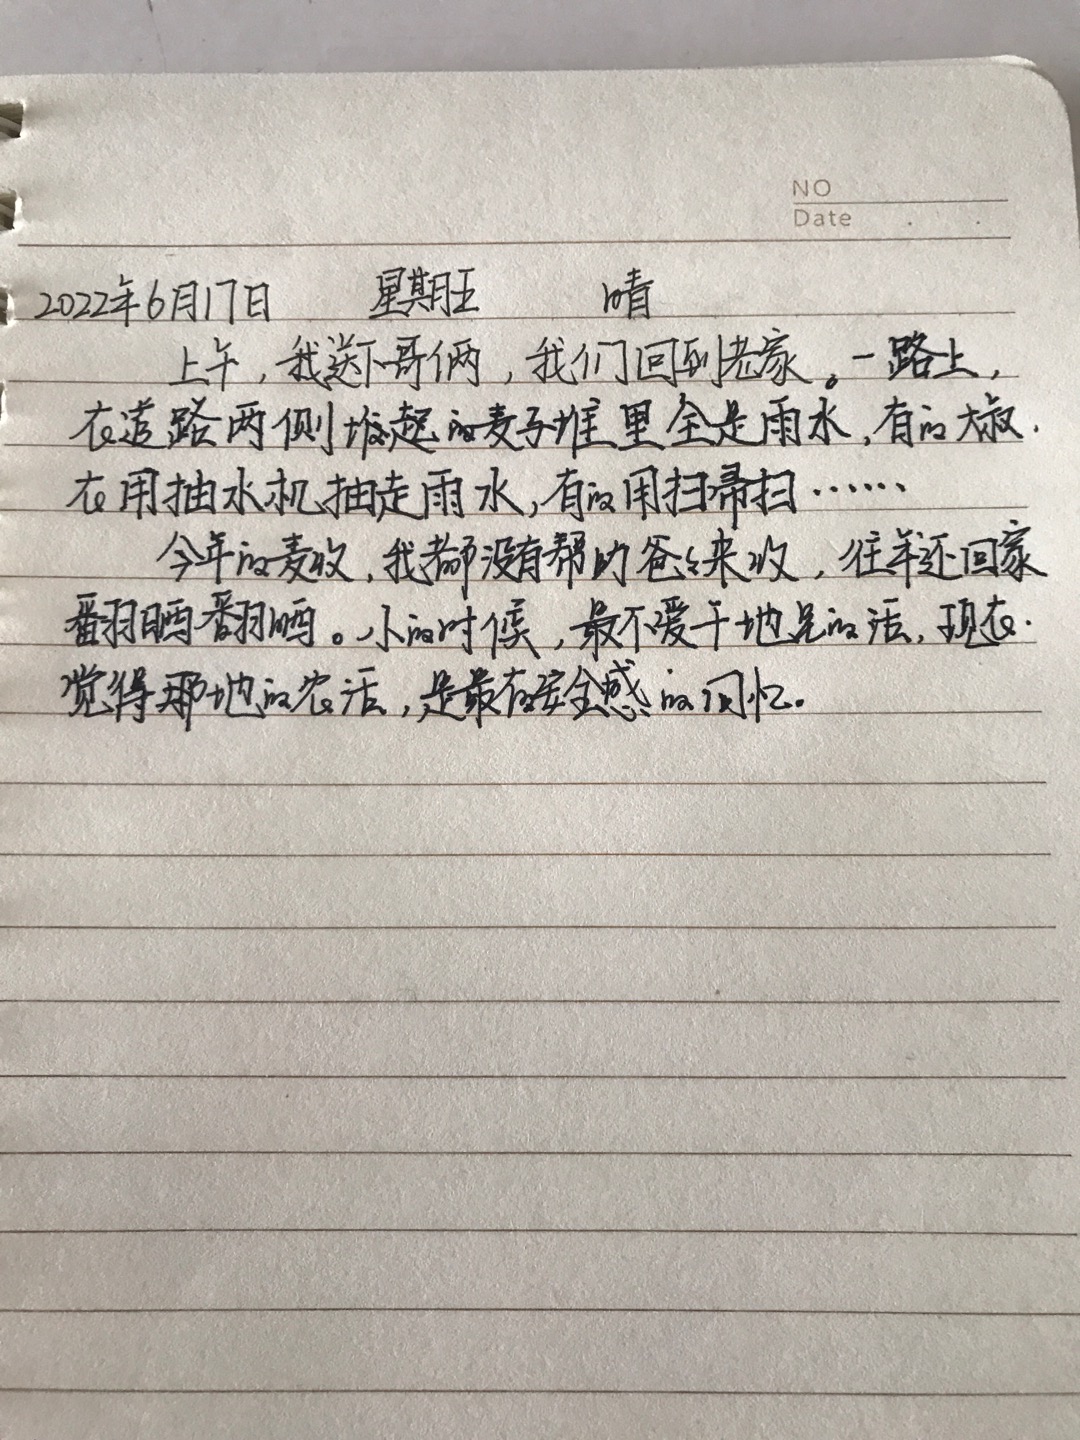 NO
Date
2022年6月17日 星期五 晴
上午，我送下哥俩，我们回到老家。一路上，
在道路两侧堆起的麦子堆里全是雨水，有的大叔
在用抽水机抽走雨水，有的用扫帚扫……
今年的麦收，我都没有帮助爸爸来收，往年还回家
翻晒翻晒。小的时候，最不爱干地里的活，现在
觉得那地的农活，是最有安全感的回忆。